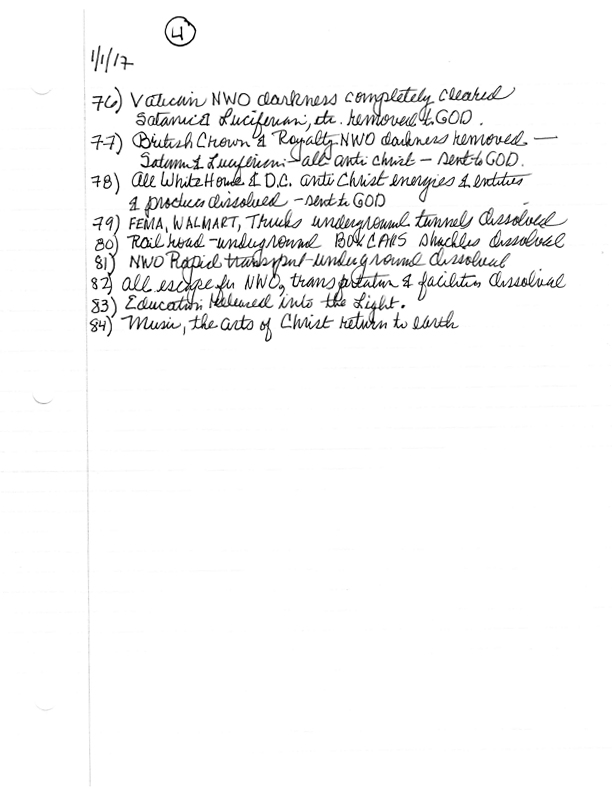 4
1/1/17
76) Vatican NWO darkness completely cleared
Satanic & Luciferian, etc. removed to GOD.
77) British Crown & Royalty NWO darkness removed —
Satanic & Luciferian - all anti christ - sent to GOD.
78) All White House & D.C. anti Christ energies & entities
& process dissolved - sent to GOD
79) FEMA, WALMART, Trucks underground tunnels dissolved
80) Rail road - underground BOX CARS shackles dissolved
81) NWO Rapid transport - underground dissolved
82) all escape for NWO, transportation & facilities dissolved
83) Education Released into the Light.
84) Music, the arts of Christ return to earth